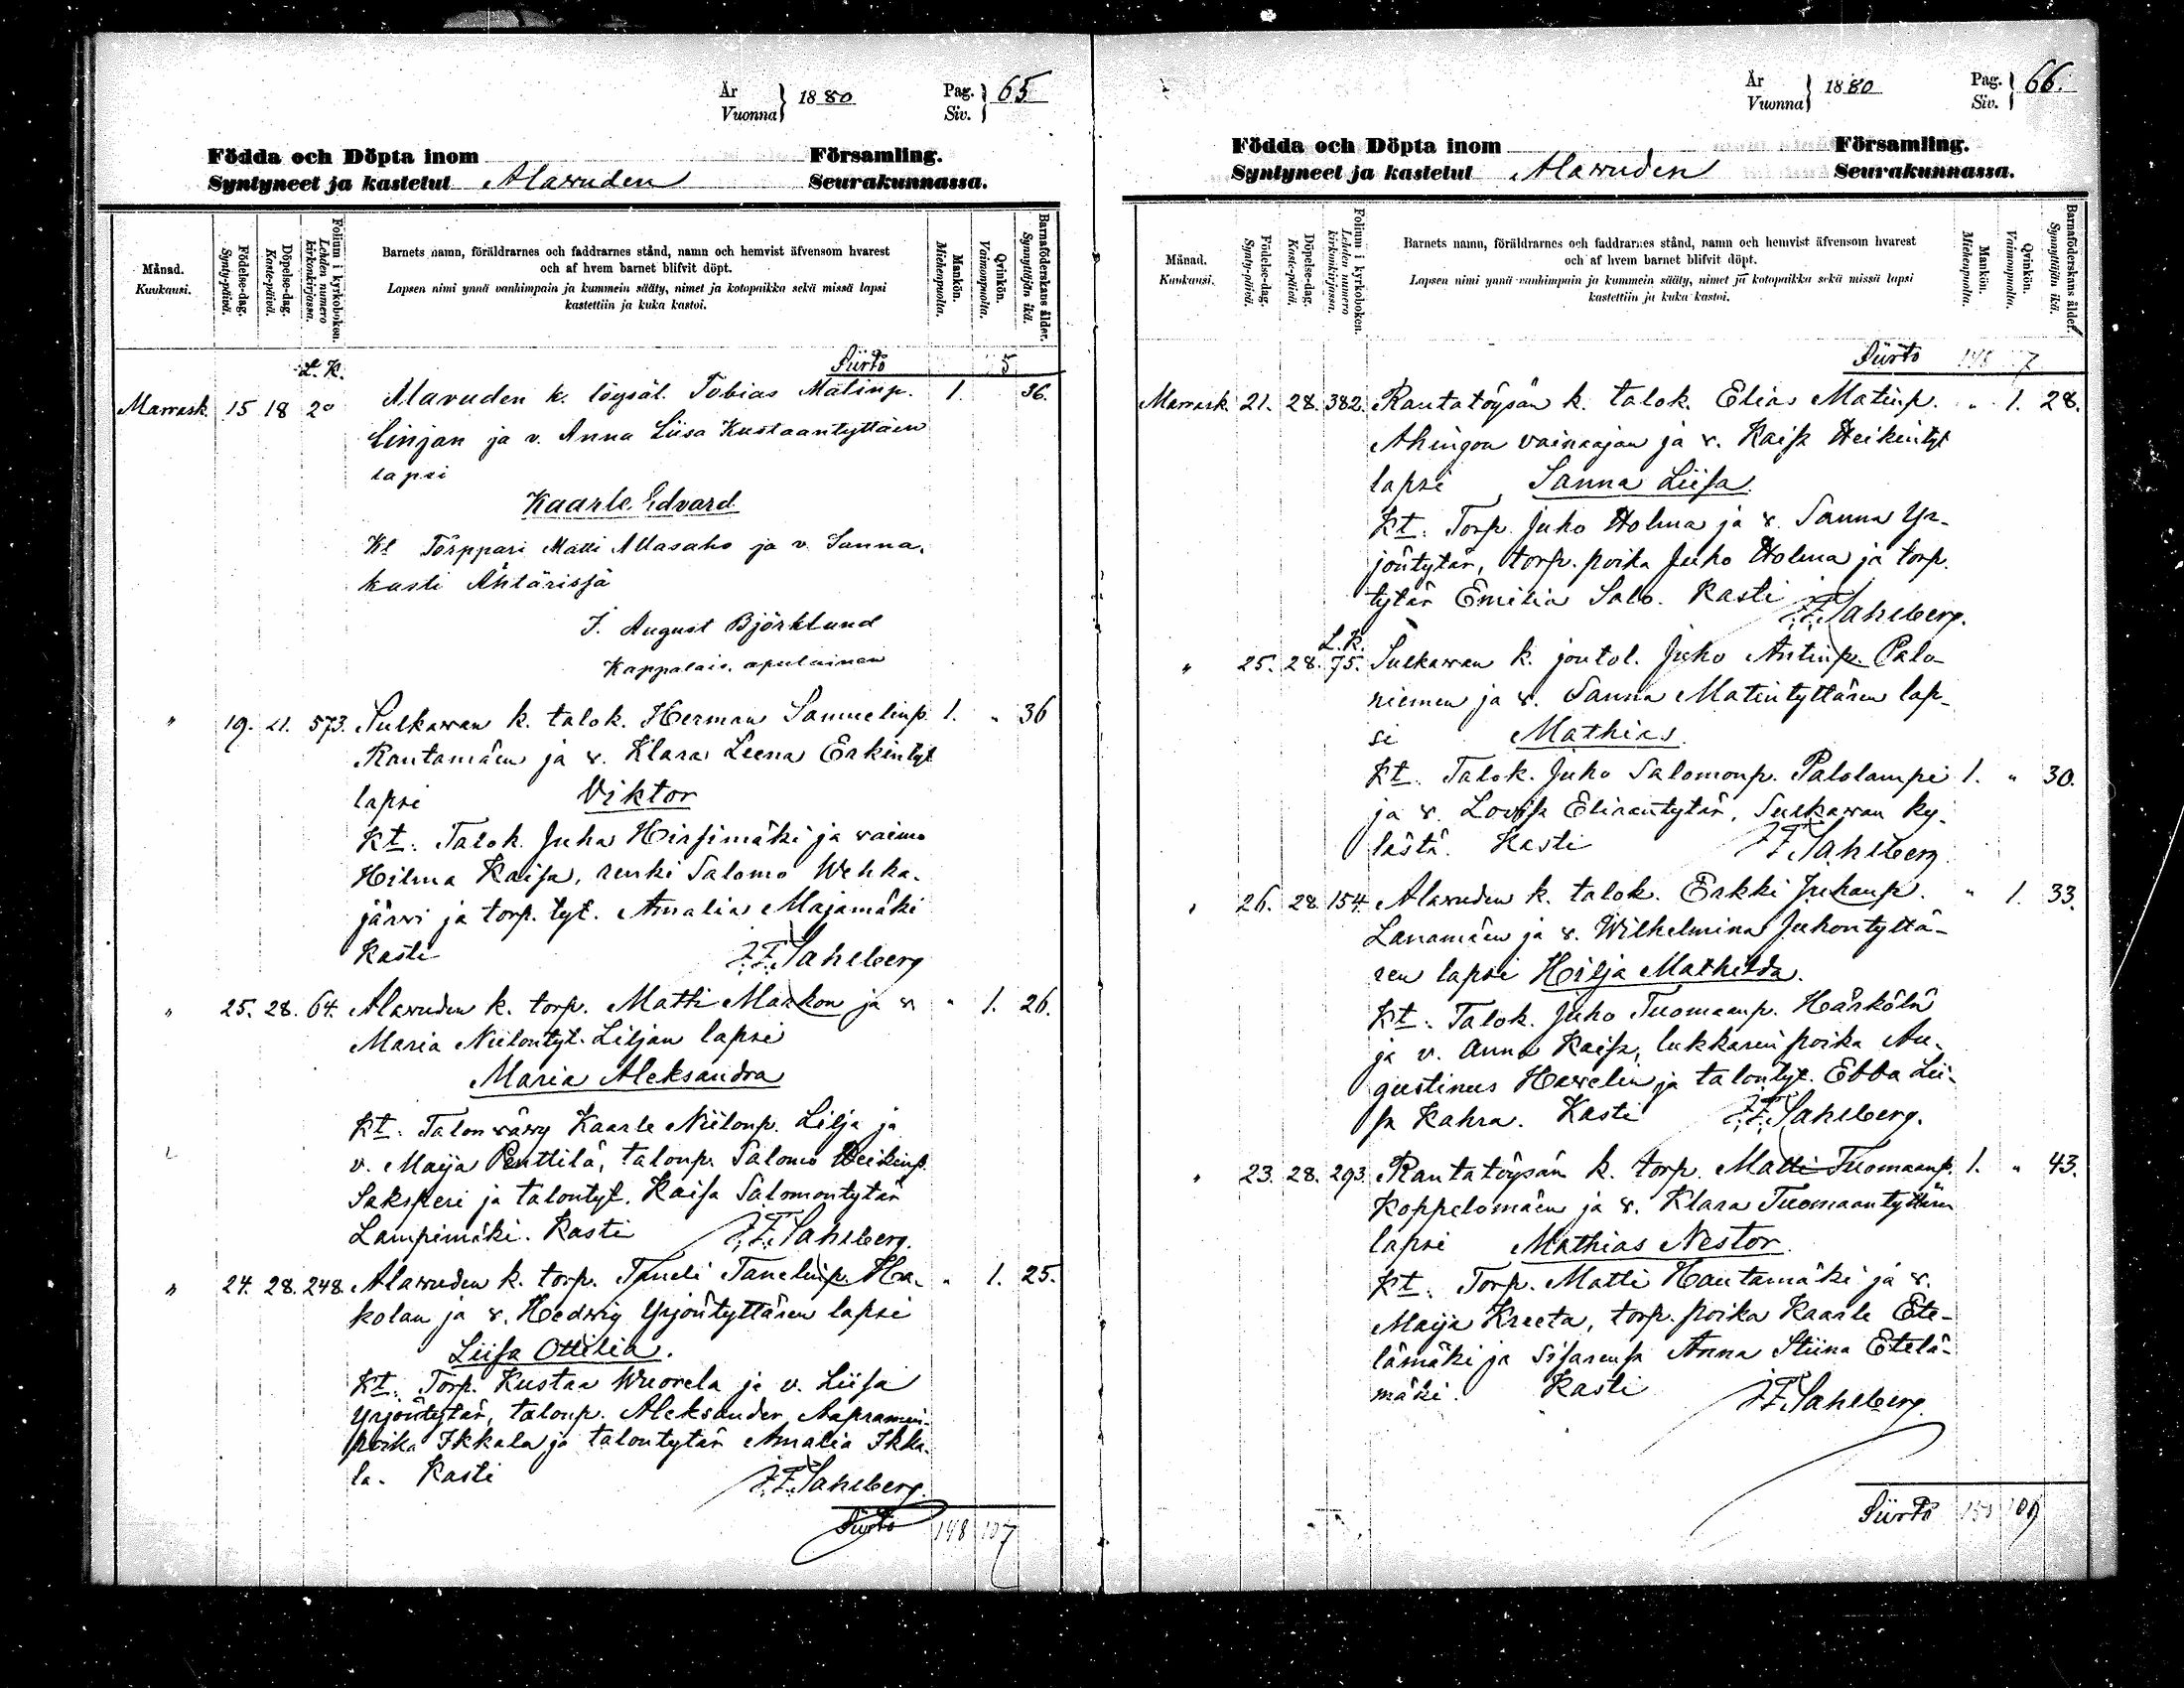 År
Vuonna } 1880 Pag.
Siv. } 65
Födda och Döpta inom Församling.
Syntyneet ja kastetut Alavuden Seurakunnassa.
Månad.
Kuukausi.
Födelse-dag.
Synty-päivä.
Döpelse-dag.
Kaste-päivä.
Folium i kyrkoboken.
Lehden numero kirkonkirjassa.
Barnets namn, föräldrarnes och faddrarnes stånd, namn och hemvist äfvensom hvarest
och af hvem barnet blifvit döpt.
Lapsen nimi ynnä vanhimpain ja kummein sääty, nimet ja kotopaikka sekä missä lapsi
kastettiin ja kuka kastoi.
Mankön.
Miehenpuolta.
Qvinkön.
Vaimonpuolta.
Barnaföderskans ålder.
Synnyttäjän ikä.
Siirto 5
L. K.
Marrask. 15 18 20 Alavuden k. löysäl. Tobias Matinp. 1. 36.
Linjan ja v. Anna Liisa Kustaantyttären
lapsi
Kaarle Edvard
Kt Torppari Matti Allasaho ja v. Sanna.
kasti Ähtärissä
J. August Björklund
Kappalais. apulainen
" 19. 21. 573. Sulkawan k. talok. Herman Samuelinp. 1. " 36
Rantamäen ja v. Klara Leena Erkintyt
lapsi Viktor
Kt. Talok. Juha Hirsimäki ja vaimo
Hilma Kaisa, renki Salomo Wehka-
järwi ja torp. tyt. Amalia Majamäki
Kasti J.F. Sahlberg
" 25. 28. 64. Alawuden k. torp. Matti Markon ja v. " 1. 26.
Maria Niilontyt. Liljan lapsi
Maria Aleksandra
Kt. Talonwäwy Kaarle Niilonp. Lilja ja
v. Maija Penttilä, talonp. Salomo Heikinp.
Saksperi ja talontyt. Kaisa Salomontytär
Lampimäki. Kasti J.F. Sahlberg.
" 24. 28. 248. Alawuden k. torp. Taneli Tanelinp. Ha- " 1. 25.
kolan ja v. Hedwig Yrjöntyttären lapsi
Liisa Ottilia.
Kt. Torp. Kustaa Wuorela ja v. Liisa
Yrjöntytär, talonp. Aleksander Aapramin-
poika Ikkala ja talontytär Amalia Ikka-
la. Kasti J.F. Sahlberg.
Siirto 148 107
År
Vuonna } 1880 Pag.
Siv. } 66.
Födda och Döpta inom Församling.
Syntyneet ja kastetut Alawuden Seurakunnassa.
Månad.
Kuukausi.
Födelse-dag.
Synty-päivä.
Döpelse-dag.
Kaste-päivä.
Folium i kyrkoboken.
Lehden numero kirkonkirjassa.
Barnets namn, föräldrarnes och faddrarnes stånd, namn och hemvist äfvensom hvarest
och af hvem barnet blifvit döpt.
Lapsen nimi ynnä vanhimpain ja kummein sääty, nimet ja kotopaikka sekä missä lapsi
kastettiin ja kuka kastoi.
Mankön.
Miehenpuolta.
Qvinkön.
Vaimonpuolta.
Barnaföderskans ålder.
Synnyttäjän ikä.
Siirto 148 7
Marrask. 21. 28. 382. Rantatöysän k. talok. Elias Matinp. " 1. 28.
Ahingon vainaajan ja v. Kaisa Heikintyt
lapsi Sanna Liisa.
Kt. Torp. Juho Holma ja v. Sanna Yr-
jöntytär, torp. poika Juho Holma ja torp.
tytär Emilia Salo. Kasti J.F. Sahlberg.
L.K.
" 25. 28. 75. Sulkawan k. joutol. Juho Antinp. Palo-
niemen ja v. Sanna Matintyttären lap-
si Mathias.
Kt. Talok. Juho Salomonp. Palolampi 1. " 30.
ja v. Lovisa Eliaantytär, Sulkawan ky-
lästä. Kasti J.F. Sahlberg.
" 26. 28. 154. Alawuden k. talok. Erkki Juhanp. " 1. 33.
Lanamäen ja v. Wilhelmina Juhontyttä-
ren lapsi Hilja Mathilda.
Kt. Talok. Juho Tuomaanp. Härkölä
ja v. Anna Kaisa, lukkarin poika Au-
gustinus Hawelin ja talontyt. Ebba Lii-
sa Kahra. Kasti J.F. Sahlberg.
" 23. 28. 293. Rantatöysän k. torp. Matti Tuomaanp. 1. " 43.
Koppelomäen ja v. Klara Tuomaantyttären
lapsi Mathias Nestor.
Kt. Torp. Matti Hautamäki ja v.
Maija Kreeta, torp. poika Kaarle Ete-
lämäki ja sisarensa Anna Stiina Etelä-
mäki. Kasti J.F. Sahlberg.
Siirto 109